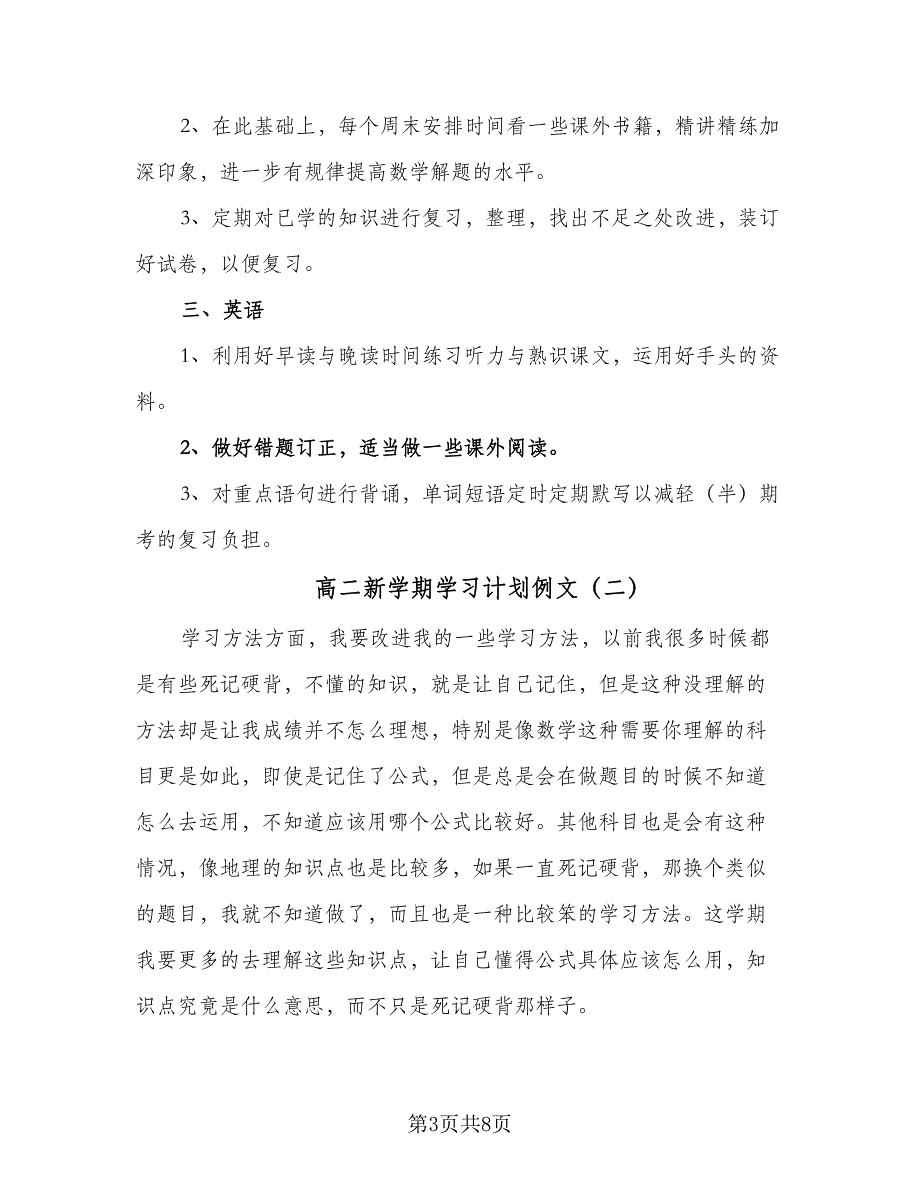 2、在此基础上，每个周末安排时间看一些课外书籍，精讲精练加
深印象，进一步有规律提高数学解题的水平。
3、定期对已学的知识进行复习，整理，找出不足之处改进，装订
好试卷，以便复习。
三、英语
1、利用好早读与晚读时间练习听力与熟识课文，运用好手头的资
料。
2、做好错题订正，适当做一些课外阅读。
3、对重点语句进行背诵，单词短语定时定期默写以减轻（半）期
考的复习负担。
高二新学期学习计划例文（二）
学习方法方面，我要改进我的一些学习方法，以前我很多时候都
是有些死记硬背，不懂的知识，就是让自己记住，但是这种没理解的
方法却是让我成绩并不怎么理想，特别是像数学这种需要你理解的科
目更是如此，即使是记住了公式，但是总是会在做题目的时候不知道
怎么去运用，不知道应该用哪个公式比较好。其他科目也是会有这种
情况，像地理的知识点也是比较多，如果一直死记硬背，那换个类似
的题目，我就不知道做了，而且也是一种比较笨的学习方法。这学期
我要更多的去理解这些知识点，让自己懂得公式具体应该怎么用，知
识点究竟是什么意思，而不只是死记硬背那样子。
第3页共8页